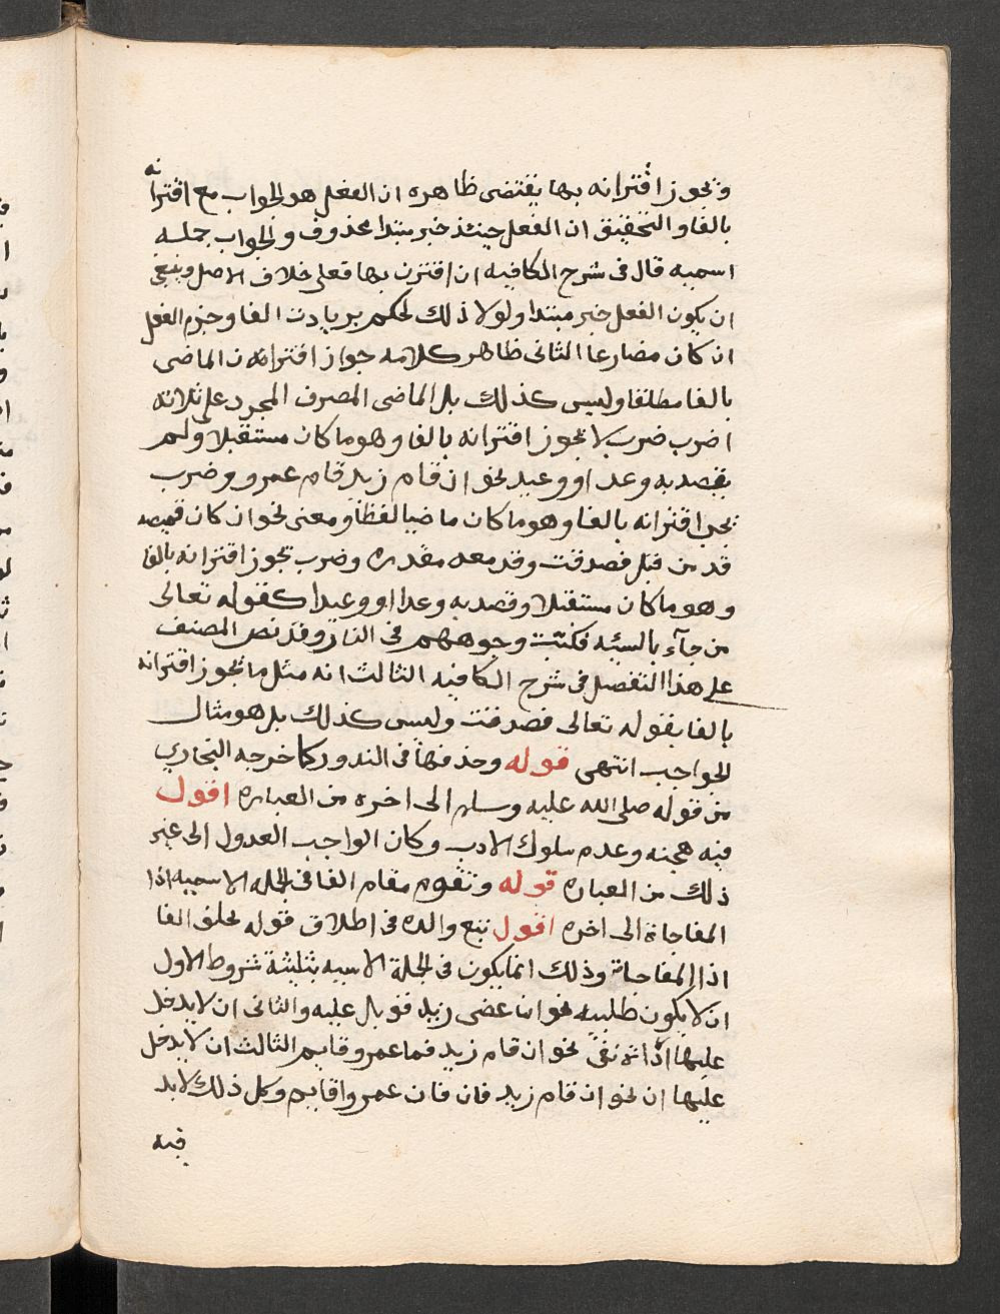 ويجوز اقترانه بها يقتضى ظاهره ان الفعل هو الجواب مع اقترانه
بالفا والتحقيق ان الفعل حينئذ خبر مبتدا محذوف والجواب جمله
اسميه قال فى شرح الكافيه ان اقترن بها فعلى خلاف الاصل وينبغى
ان يكون الفعل خبر مبتدا ولولا ذلك لحكم بزيادت الفا وجزم الفعل
ان كان مضارعا الثانى ظاهر كلامه جواز اقترانه ن الماضى
بالفا مطلقا وليس كذلك بل الماضى المصرف المجرد على ثلاثه
اضرب ضرب لا يجوز اقترانه بالفا وهو ما كان مستقبلا ولم
يقصد به وعد او وعيد نحو ان قام زيد قام عمرو وضرب
يجب اقترانه بالفا وهو ما كان ماضيا لفظا ومعنى نحو ان كان قميصه
قد من قبل فصدقت وقد معه مقدره وضرب يجوز اقترانه بالفا
وهو ما كان مستقبلا وقصد به وعدا او وعيدا كقوله تعالى
من جآء بالسيئه فكبت وجوههم فى النار وقد نص المصنف
على هذا التفصل فى شرح الكافيه الثالث انه مثل ما يجوز اقترانه
بالفا بقوله تعالى فصدقت وليس كذلك بل هو مثال
الواجب انتهى قوله وحذفها فى الندور كما خرجه البخاري
من قوله صلى الله عليه وسلم الى اخره من العباره اقول
فيه هجنه وعدم سلوك الادب وكان الواجب العدول الى غير
ذلك من العباره قوله وتقوم مقام الفا فى الجله الاسميه اذا
المفاجاة الى اخره اقول تبع والده فى اطلاق قوله تخلف الفا
اذا المفاجاة وذلك انما يكون فى الجملة الاسيه بثليثة شروط الاول
ان لا يكون طلبيه نحو ان عصى زيد فويل عليه والثانى ان لا يدخل
عليها اداة نفى نحو ان قام زيد فما عمرو قايم الثالث ان لا يدخل
عليها ان نحو ان قام زيد فان فان عمروا قايم وكل ذلك لابد
فيه